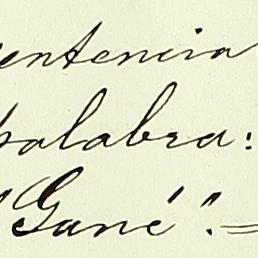 sentencia
palabra:
"Gané".=